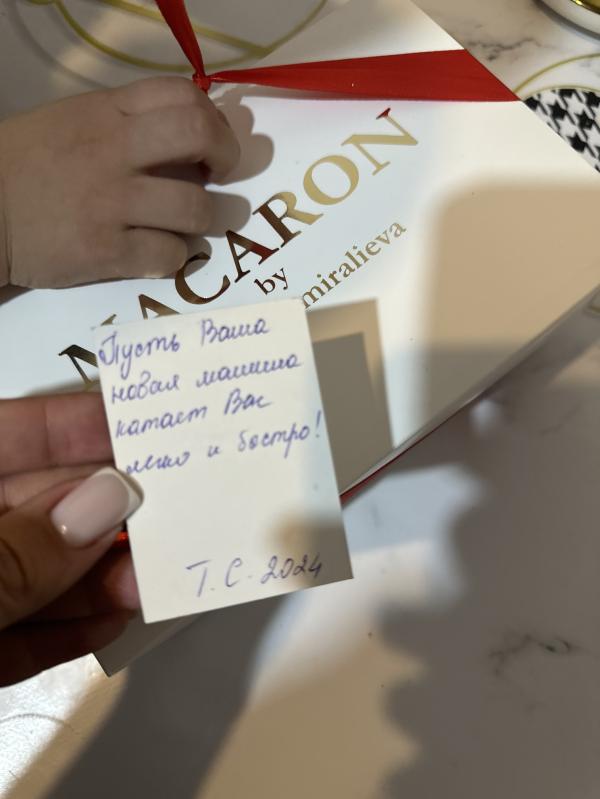 MACARON
by
miralieva
Пусть Ваша
новая машина
катает Вас
легко и быстро!
Т. С. 2024